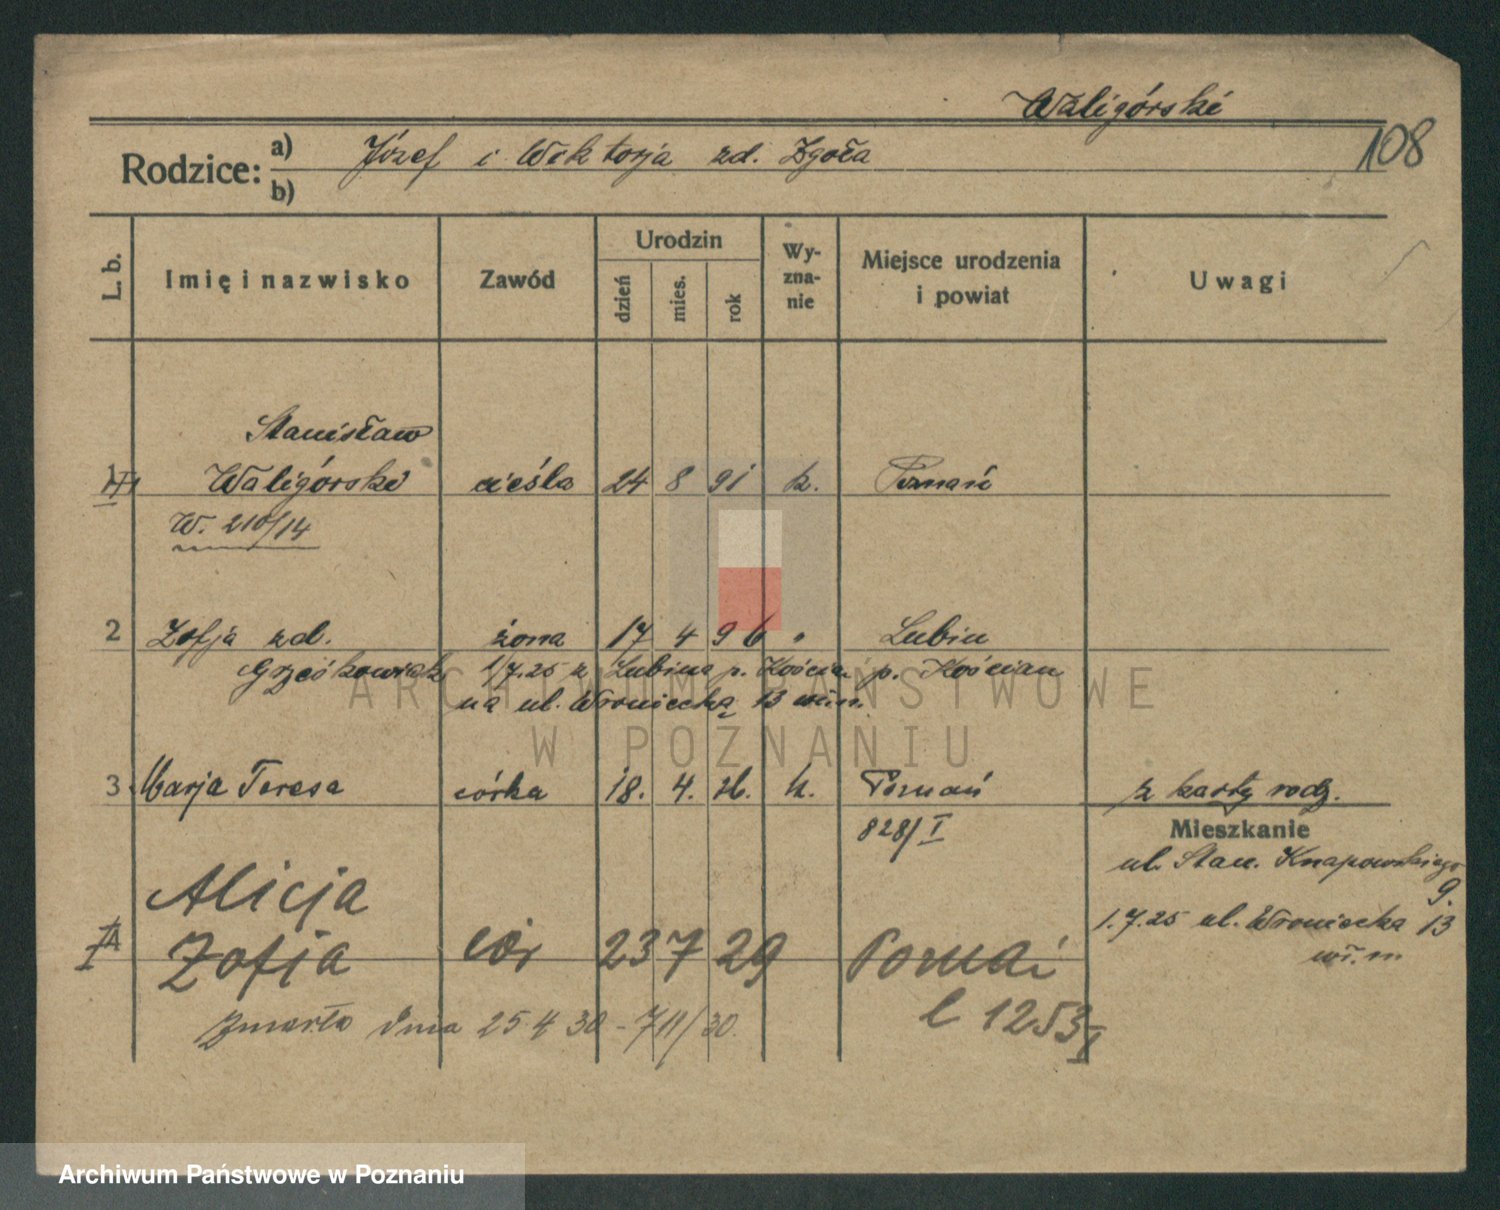 Waligórski
108
Rodzice: a) Józef i Wiktorja zd. Zgoła
b)
L. b. Imię i nazwisko Zawód Urodzin dzień mies. rok Wy-zna-nie Miejsce urodzenia i powiat Uwagi
Stanisław
1 Waligórski cieśla 24 8 91 k. Poznań
W. 210/14
2 Zofja zd. żona 17 4 96 " Lubin
Grześkowiak 1/7.25 z Lubina p. Kościan p. Kościan
na ul. Wroniecką 13
3 Marja Teresa córka 18. 4. 26. k. Poznań z karty rodz.
828/I
Mieszkanie
ul. Stan. Knapowskiego
9.
1.7.25 ul. Wroniecka 13
Alicja
4 Zofja cór 23 7 29 Poznań
zmarła dnia 25 4 30 - 711/30.
l 1253/I
ARCHIWUM PAŃSTWOWE
W POZNANIU
Archiwum Państwowe w Poznaniu